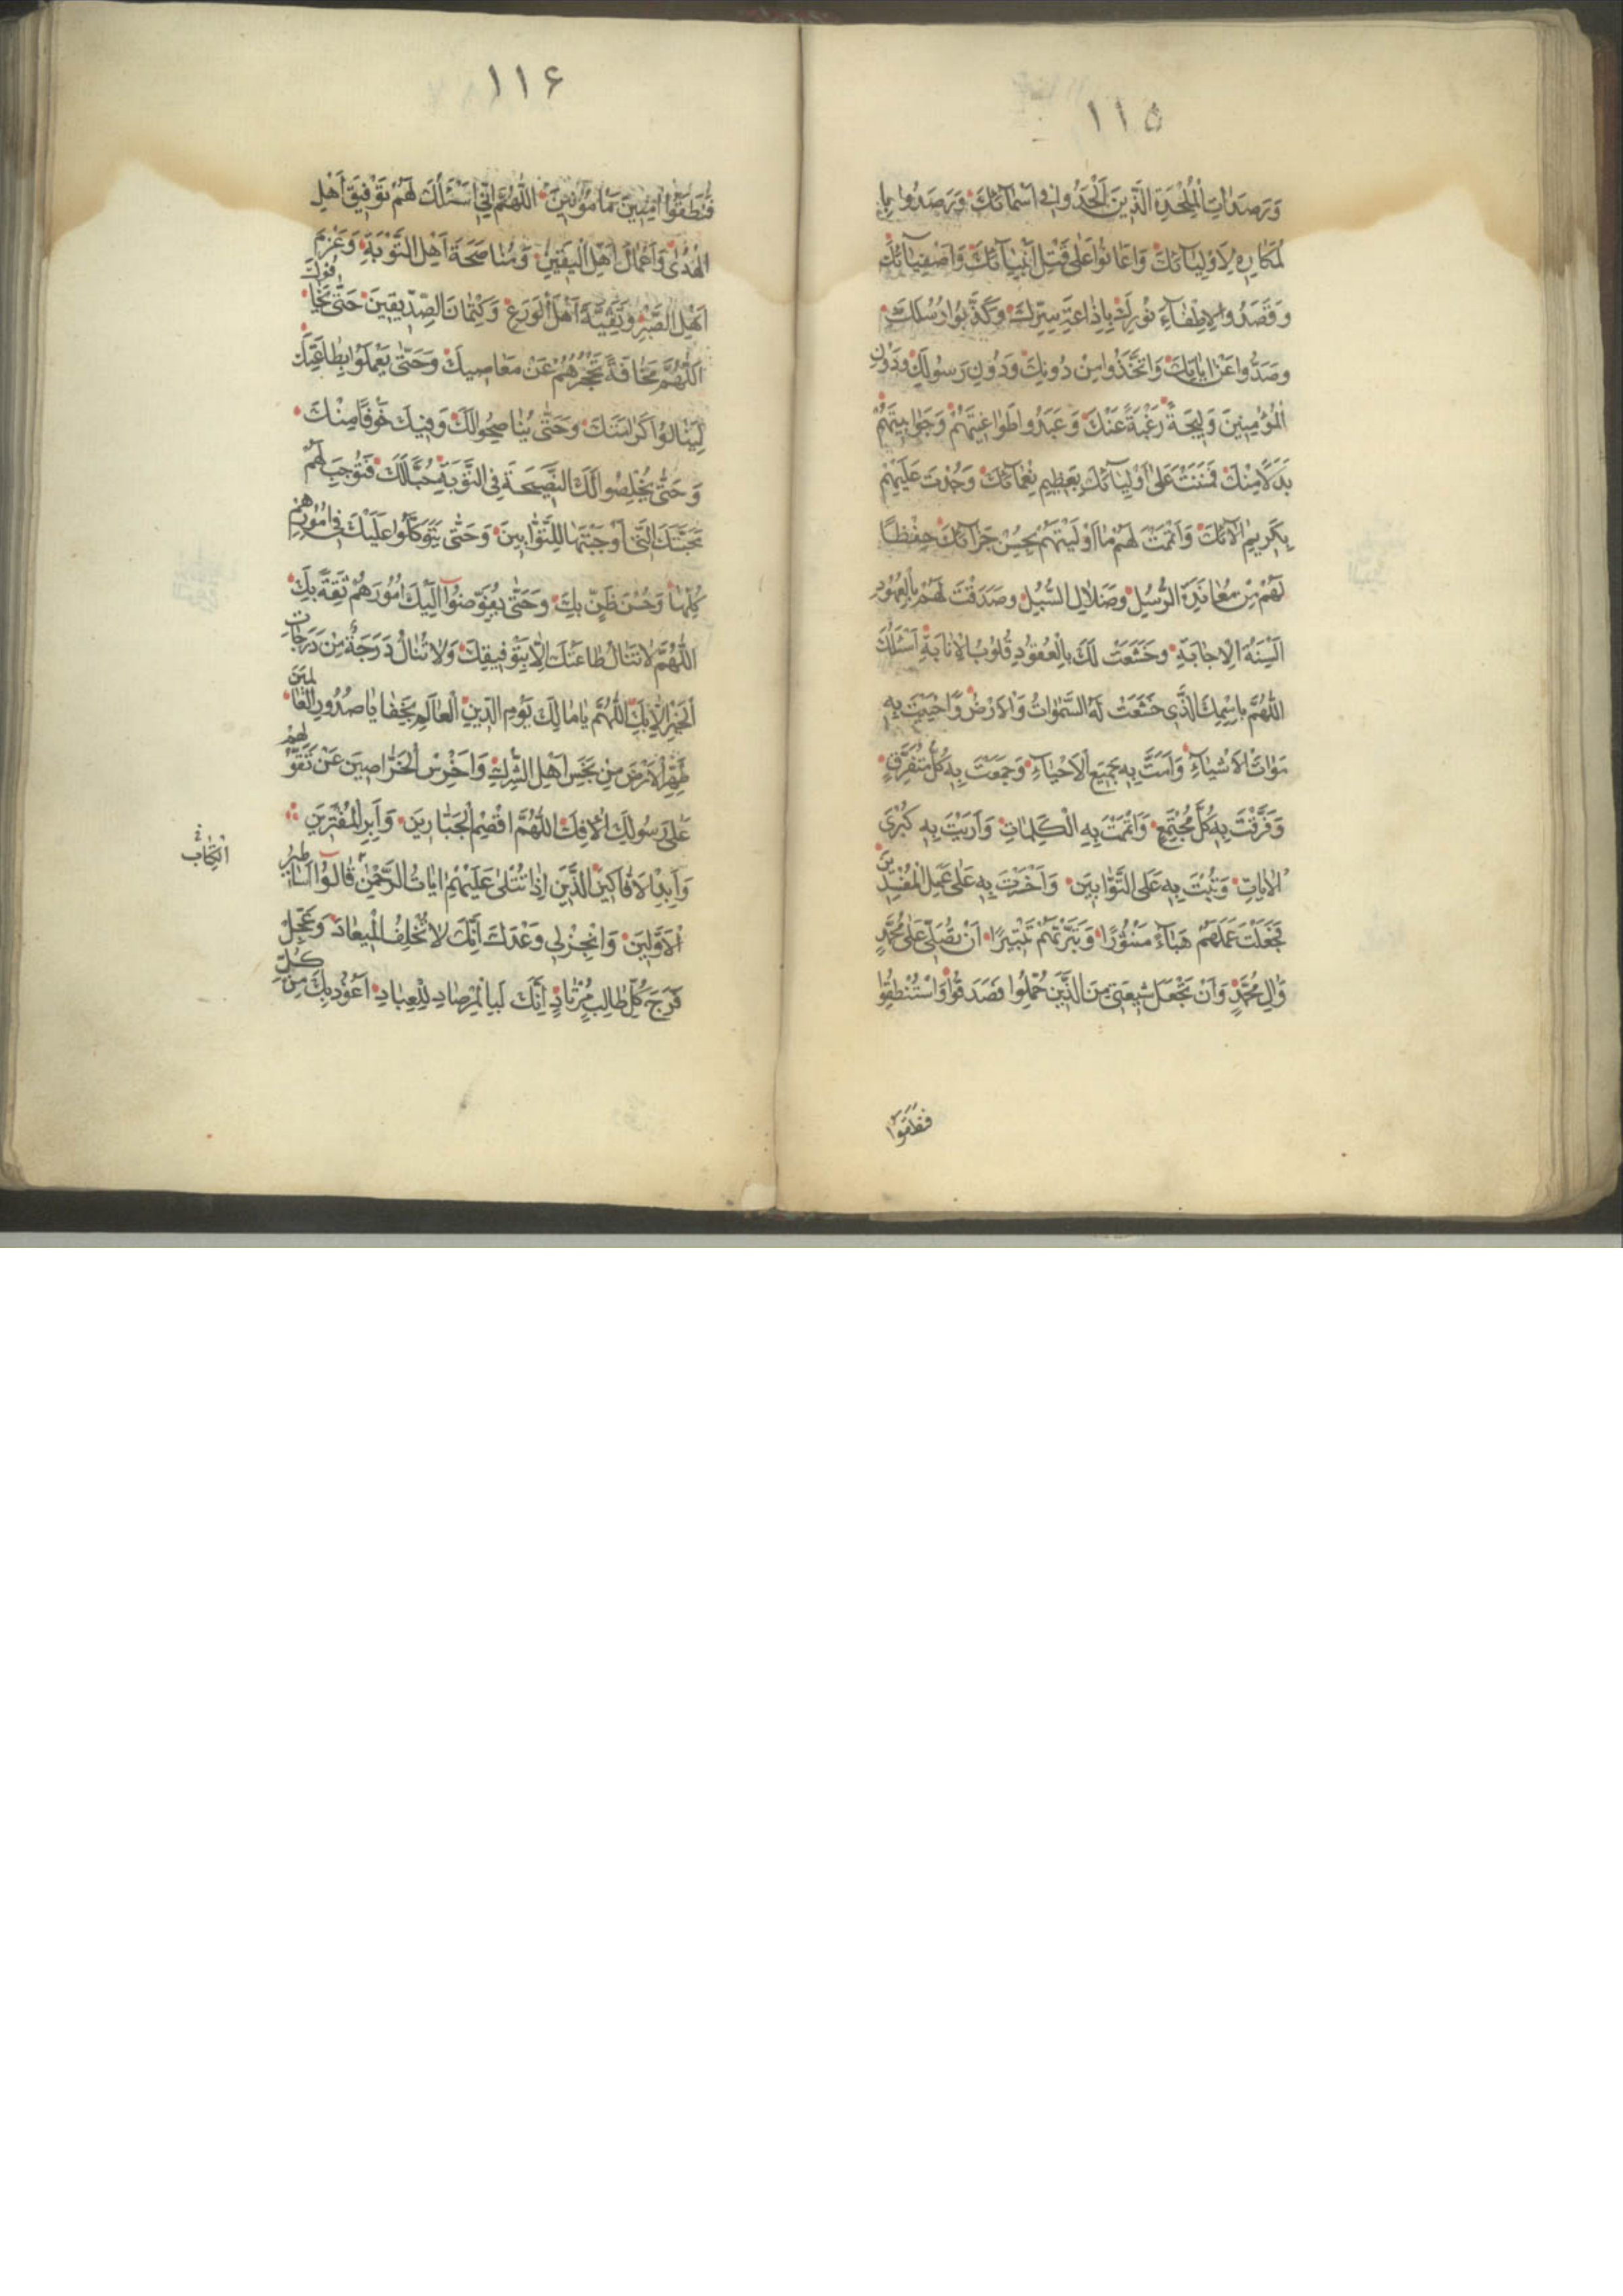 ١١٥
وَرَصَدَاتِ الْمُلْحِدَةِ الَّذِينَ اَلْحَدُوا فِي اَسْمَآئِكَ وَرَصَدُوا بِا
لْمَكَارِهِ لِاَوْلِيَآئِكَ وَاَعَانُوا عَلٰى قَتْلِ اَنْبِيَآئِكَ وَاَصْفِيَآئِكَ
وَقَصَدُوا لِاِطْفَآءِ نُورِكَ بِاِذَاعَةِ سِرِّكَ وَكَذَّبُوا رُسُلَكَ
وَصَدُّوا عَنْ اٰيَاتِكَ وَاتَّخَذُوا مِنْ دُونِكَ وَدُونِ رَسُولِكَ وَدُونِ
الْمُؤْمِنِينَ وَلِيجَةً رَغْبَةً عَنْكَ وَعَبَدُوا طَوَاغِيتَهُمْ وَجَوَابِيتَهُمْ
بَدَلًا مِنْكَ فَمَنَنْتَ عَلٰى اَوْلِيَآئِكَ بِعَظِيمِ نِعْمَائِكَ وَجُدْتَ عَلَيْهِمْ
بِكَرِيمِ اٰلَآئِكَ وَاَتْمَمْتَ لَهُمْ مَا اَوْلَيْتَهُمْ بِحُسْنِ جَزَآئِكَ حِفْظًا
لَهُمْ مِنْ مُعَانَدَةِ الرُّسُلِ وَضَلَالِ السُّبُلِ وَصَدَقَتْ لَهُمْ بِالْعُهُودِ
اَلْسِنَةُ الْاِجَابَةِ وَخَشَعَتْ لَكَ بِالْعُقُودِ قُلُوبُ الْاِنَابَةِ اَسْئَلُكَ
اللّٰهُمَّ بِاسْمِكَ الَّذِي خَشَعَتْ لَهُ السَّمٰوَاتُ وَالْاَرْضُ وَاَحْيَيْتَ بِهِ
مَوَاتَ الْاَشْيَآءِ وَاَمَتَّ بِهِ جَمِيعَ الْاَحْيَآءِ وَجَمَعْتَ بِهِ كُلَّ مُتَفَرِّقٍ
وَفَرَّقْتَ بِهِ كُلَّ مُجْتَمِعٍ وَاَتْمَمْتَ بِهِ الْكَلِمَاتِ وَاَرَيْتَ بِهِ كُبْرَى
الْاٰيَاتِ وَتُبْتَ بِهِ عَلَى التَّوَّابِينَ وَاَخْسَرْتَ بِهِ عَلٰى عَمَلِ الْمُفْسِدِينَ
فَجَعَلْتَ عَمَلَهُمْ هَبَآءً مَنْثُورًا وَتَبَّرْتَهُمْ تَتْبِيرًا اَنْ تُصَلِّيَ عَلٰى مُحَمَّدٍ
وَاٰلِ مُحَمَّدٍ وَاَنْ تَجْعَلَ شِيعَتِي مِنَ الَّذِينَ حُمِّلُوا فَصَدَقُوا وَاسْتُنْطِقُوا
فَنَطَقُوا
١١٦
فَنَطَقُوا اٰمِنِينَ مَأْمُونِينَ اللّٰهُمَّ اِنِّي اَسْئَلُكَ لَهُمْ تَوْفِيقَ اَهْلِ
الْهُدٰى وَاَعْمَالَ اَهْلِ الْيَقِينِ وَمُنَاصَحَةَ اَهْلِ التَّوْبَةِ وَعَزْمَ
اَهْلِ الصَّبْرِ وَتَقِيَّةَ اَهْلِ الْوَرَعِ وَكِتْمَانَ الصِّدِّيقِينَ حَتّٰى يَخَافُوكَ
اَللّٰهُمَّ مَخَافَةً تَحْجُزُهُمْ عَنْ مَعَاصِيكَ وَحَتّٰى يَعْمَلُوا بِطَاعَتِكَ
لِيَنَالُوا كَرَامَتَكَ وَحَتّٰى يُنَاصِحُوا لَكَ وَفِيكَ خَوْفًا مِنْكَ
وَحَتّٰى يُخْلِصُوا لَكَ النَّصِيحَةَ فِي التَّوْبَةِ حُبًّا لَكَ فَتُوجِبَ لَهُمْ
مَحَبَّتَكَ الَّتِي اَوْجَبْتَهَا لِلتَّوَّابِينَ وَحَتّٰى يَتَوَكَّلُوا عَلَيْكَ فِي اُمُورِهِمْ
كُلِّهَا وَحُسْنَ ظَنٍّ بِكَ وَحَتّٰى يُفَوِّضُوا اِلَيْكَ اُمُورَهُمْ ثِقَةً بِكَ
اللّٰهُمَّ لَا تُنَالُ طَاعَتُكَ اِلَّا بِتَوْفِيقِكَ وَلَا تُنَالُ دَرَجَةٌ مِنْ دَرَجَاتِ
الْخَيْرِ اِلَّا بِكَ اللّٰهُمَّ يَا مَالِكَ يَوْمِ الدِّينِ الْعَالِمِ بِخَفَايَا صُدُورِ الْعَالَمِينَ
طَهِّرِ الْاَرْضَ مِنْ نَجَسِ اَهْلِ الشِّرْكِ وَاَخْرِسِ الْخَرَّاصِينَ عَنْ تَقَوُّلِهِمْ
عَلٰى رَسُولِكَ الْاِفْكَ اللّٰهُمَّ اقْصِمِ الْجَبَّارِينَ وَاَبِرِ الْمُفْتَرِينَ
وَاَبِدِ الْاَفَّاكِينَ الَّذِينَ اِذَا تُتْلٰى عَلَيْهِمْ اٰيَاتُ الرَّحْمٰنِ قَالُوا اَسَاطِيرُ
الْاَوَّلِينَ وَاَنْجِزْ لِي وَعْدَكَ اِنَّكَ لَا تُخْلِفُ الْمِيعَادَ وَعَجِّلْ
فَرَجَ كُلِّ طَالِبٍ مُرْتَادٍ اِنَّكَ لَبِالْمِرْصَادِ لِلْعِبَادِ اَعُوذُ بِكَ مِنْ كُلِّ